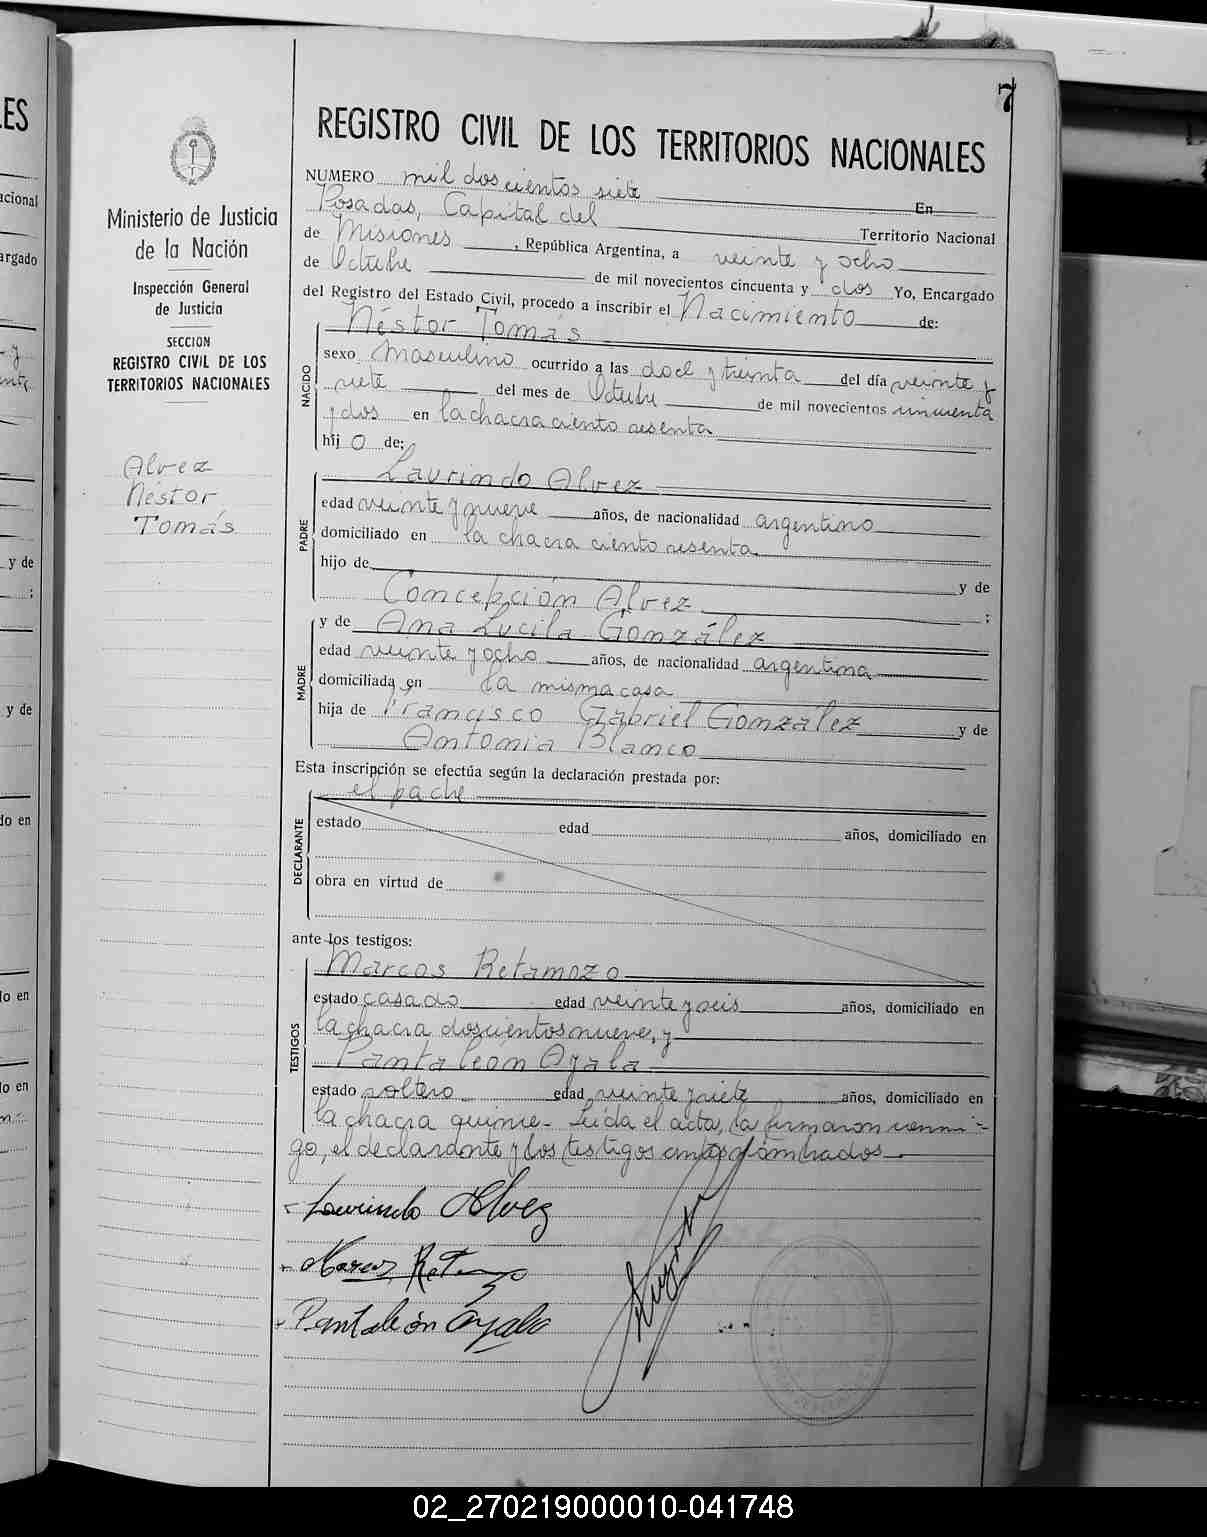 7
REGISTRO CIVIL DE LOS TERRITORIOS NACIONALES
Ministerio de Justicia
de la Nación
Inspección General
de Justicia
SECCION
REGISTRO CIVIL DE LOS
TERRITORIOS NACIONALES
Alvez
Néstor
Tomás
NUMERO mil doscientos siete En
Posadas, Capital del Territorio Nacional
de Misiones, República Argentina, a veinte y ocho
de Octubre de mil novecientos cincuenta y dos Yo, Encargado
del Registro del Estado Civil, procedo a inscribir el Nacimiento de:
NACIDO
Néstor Tomás
sexo Masculino ocurrido a las doce y treinta del día veinte y
siete del mes de Octubre de mil novecientos cincuenta
y dos en la chacra ciento sesenta
hij o de:
PADRE
Laurindo Alvez
edad veinte y nueve años, de nacionalidad argentino
domiciliado en la chacra ciento sesenta
hijo de y de
Concepción Alvez ;
MADRE
y de Ana Lucila González
edad veinte y ocho años, de nacionalidad argentina
domiciliada en la misma casa
hija de Francisco Gabriel González y de
Antonia Blanco
Esta inscripción se efectúa según la declaración prestada por:
DECLARANTE
el padre
estado edad años, domiciliado en
obra en virtud de
ante los testigos:
TESTIGOS
Marcos Retamozo
estado casado edad veinte y seis años, domiciliado en
la chacra doscientos nueve, y
Pantaleon Ayala
estado soltero edad veinte y siete años, domiciliado en
la chacra quince - Leída el acta, la firmaron conmi-
go, el declarante y los testigos antes nombrados
Laurindo Alvez
Marcos Retamozo
Pantaleón Ayala
ES
acional
argado
y de
;
y de
do en
do en
do en
02_270219000010-041748